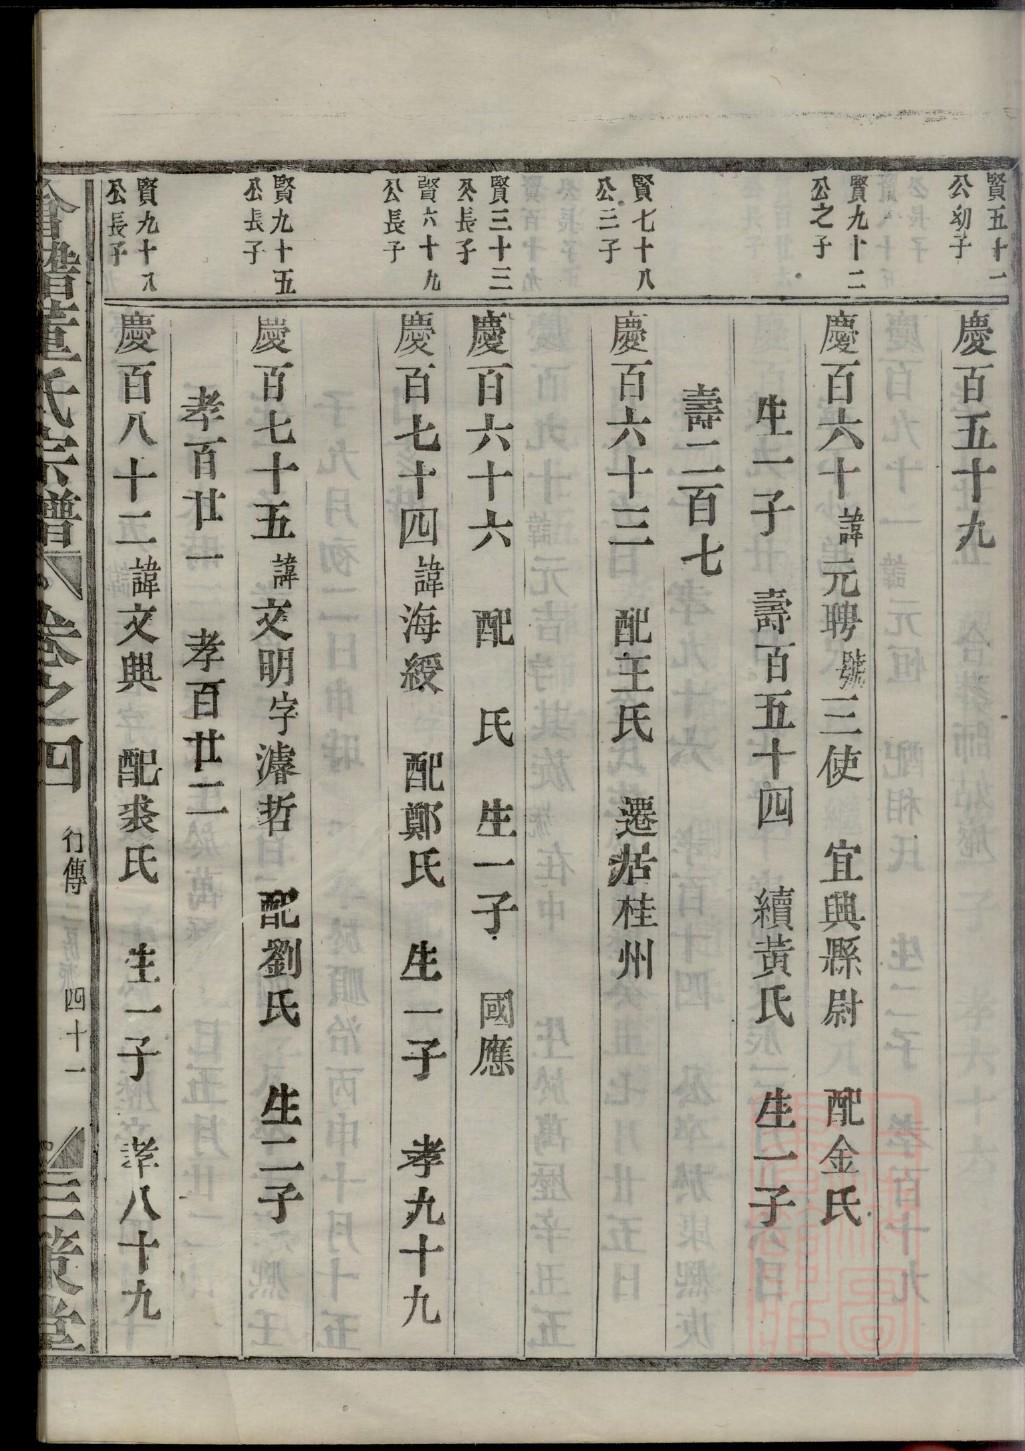 賢五十一
公幼子
慶百五十九
賢九十二
公之子
慶百六十諱元聘號三使 宜興縣尉 配金氏
生一子 壽百五十四 續黃氏 生一子
壽二百七
賢七十八
公三子
慶百六十三 配王氏 遷居桂州
賢三十三
公長子
慶百六十六 配 氏 生一子 國應
賢六十九
公長子
慶百七十四諱海綬 配鄭氏 生一子 孝九十九
賢九十五
公長子
慶百七十五諱文明字濬哲 配劉氏 生二子
孝百廿一 孝百廿二
賢九十八
公長子
慶百八十二諱文興 配裘氏 生一子 孝八十九
董氏宗譜 卷之四 行傳 四十一 三策堂